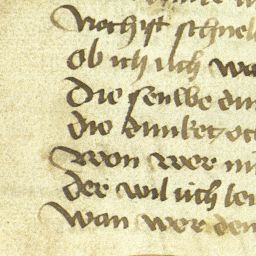 Noch ist schnel
ob ich uch wa
Die selbe du
die dunket oc
Won wer m
der wil uch
Wan wer den